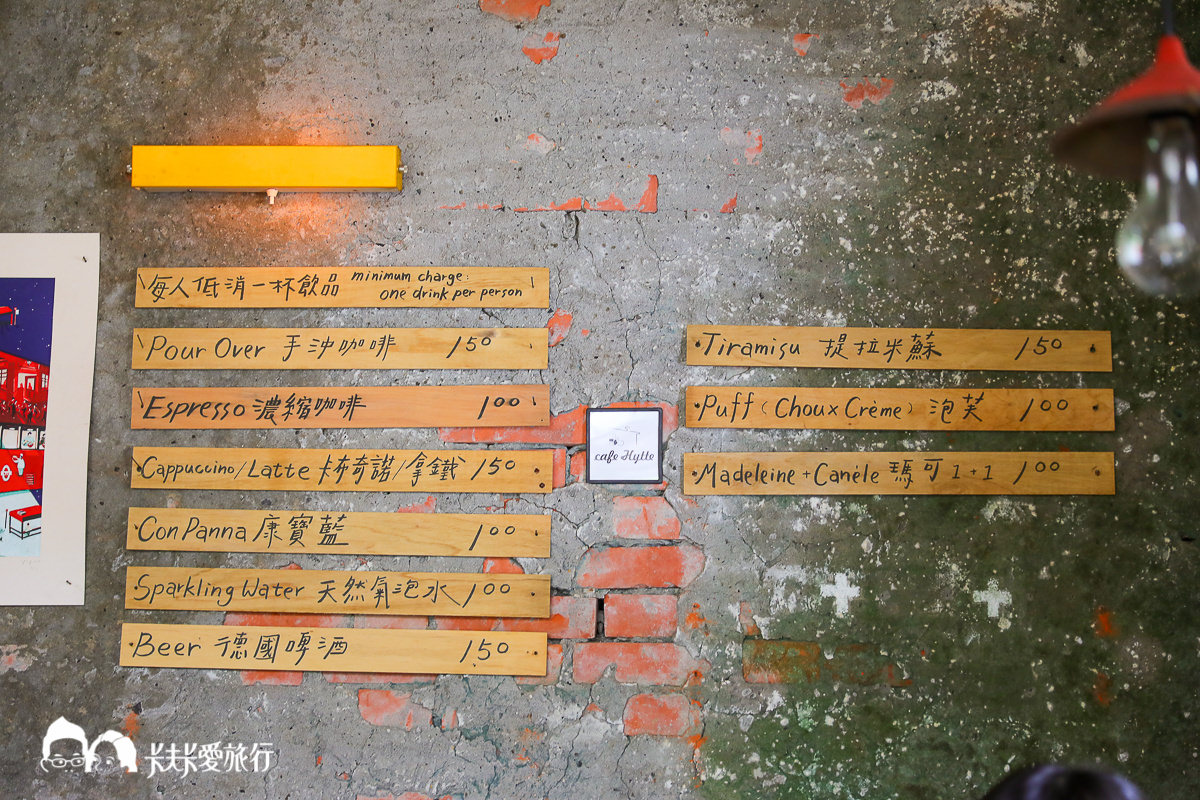 每人低消一杯飲品 minimum charge:
one drink per person
Pour Over 手沖咖啡 150
Espresso 濃縮咖啡 100
Cappuccino/Latte 卡布奇諾/拿鐵 150
Con Panna 康寶藍 100
Sparkling Water 天然氣泡水 100
Beer 德國啤酒 150
Tiramisu 提拉米蘇 150
Puff (Choux Crème) 泡芙 100
Madeleine + Canèle 瑪可 1+1 100
cafe Hytte
卡夫卡愛旅行